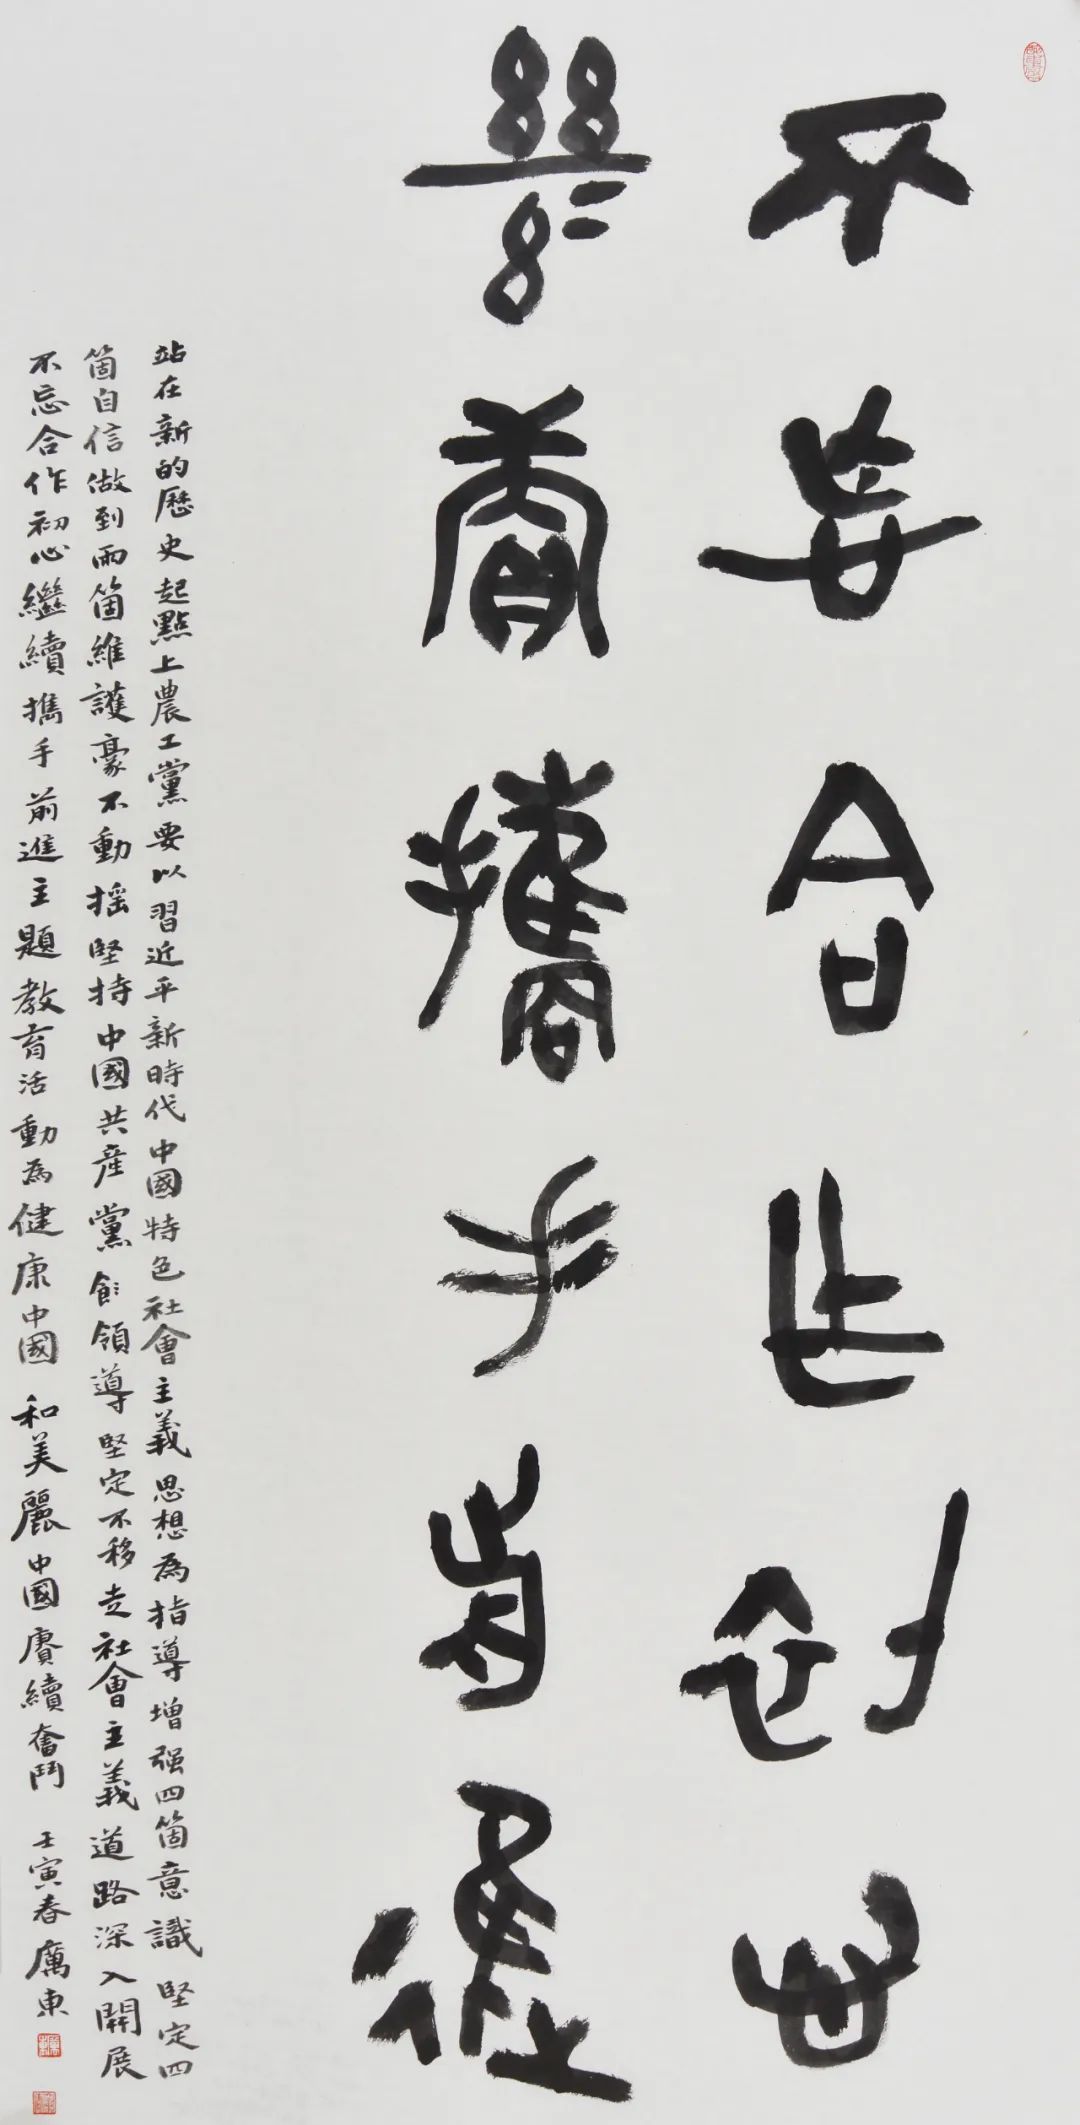 不忘合作初心
繼續攜手前進
站在新的歷史起點上農工黨要以習近平新時代中國特色社會主義思想為指導增强四箇意識堅定四
箇自信做到兩箇維護豪不動摇堅持中國共産黨領導堅定不移走社會主義道路深入開展
不忘合作初心繼續攜手前進主題教育活動為健康中國和美麗中國賡續奮鬥 壬寅春厲東